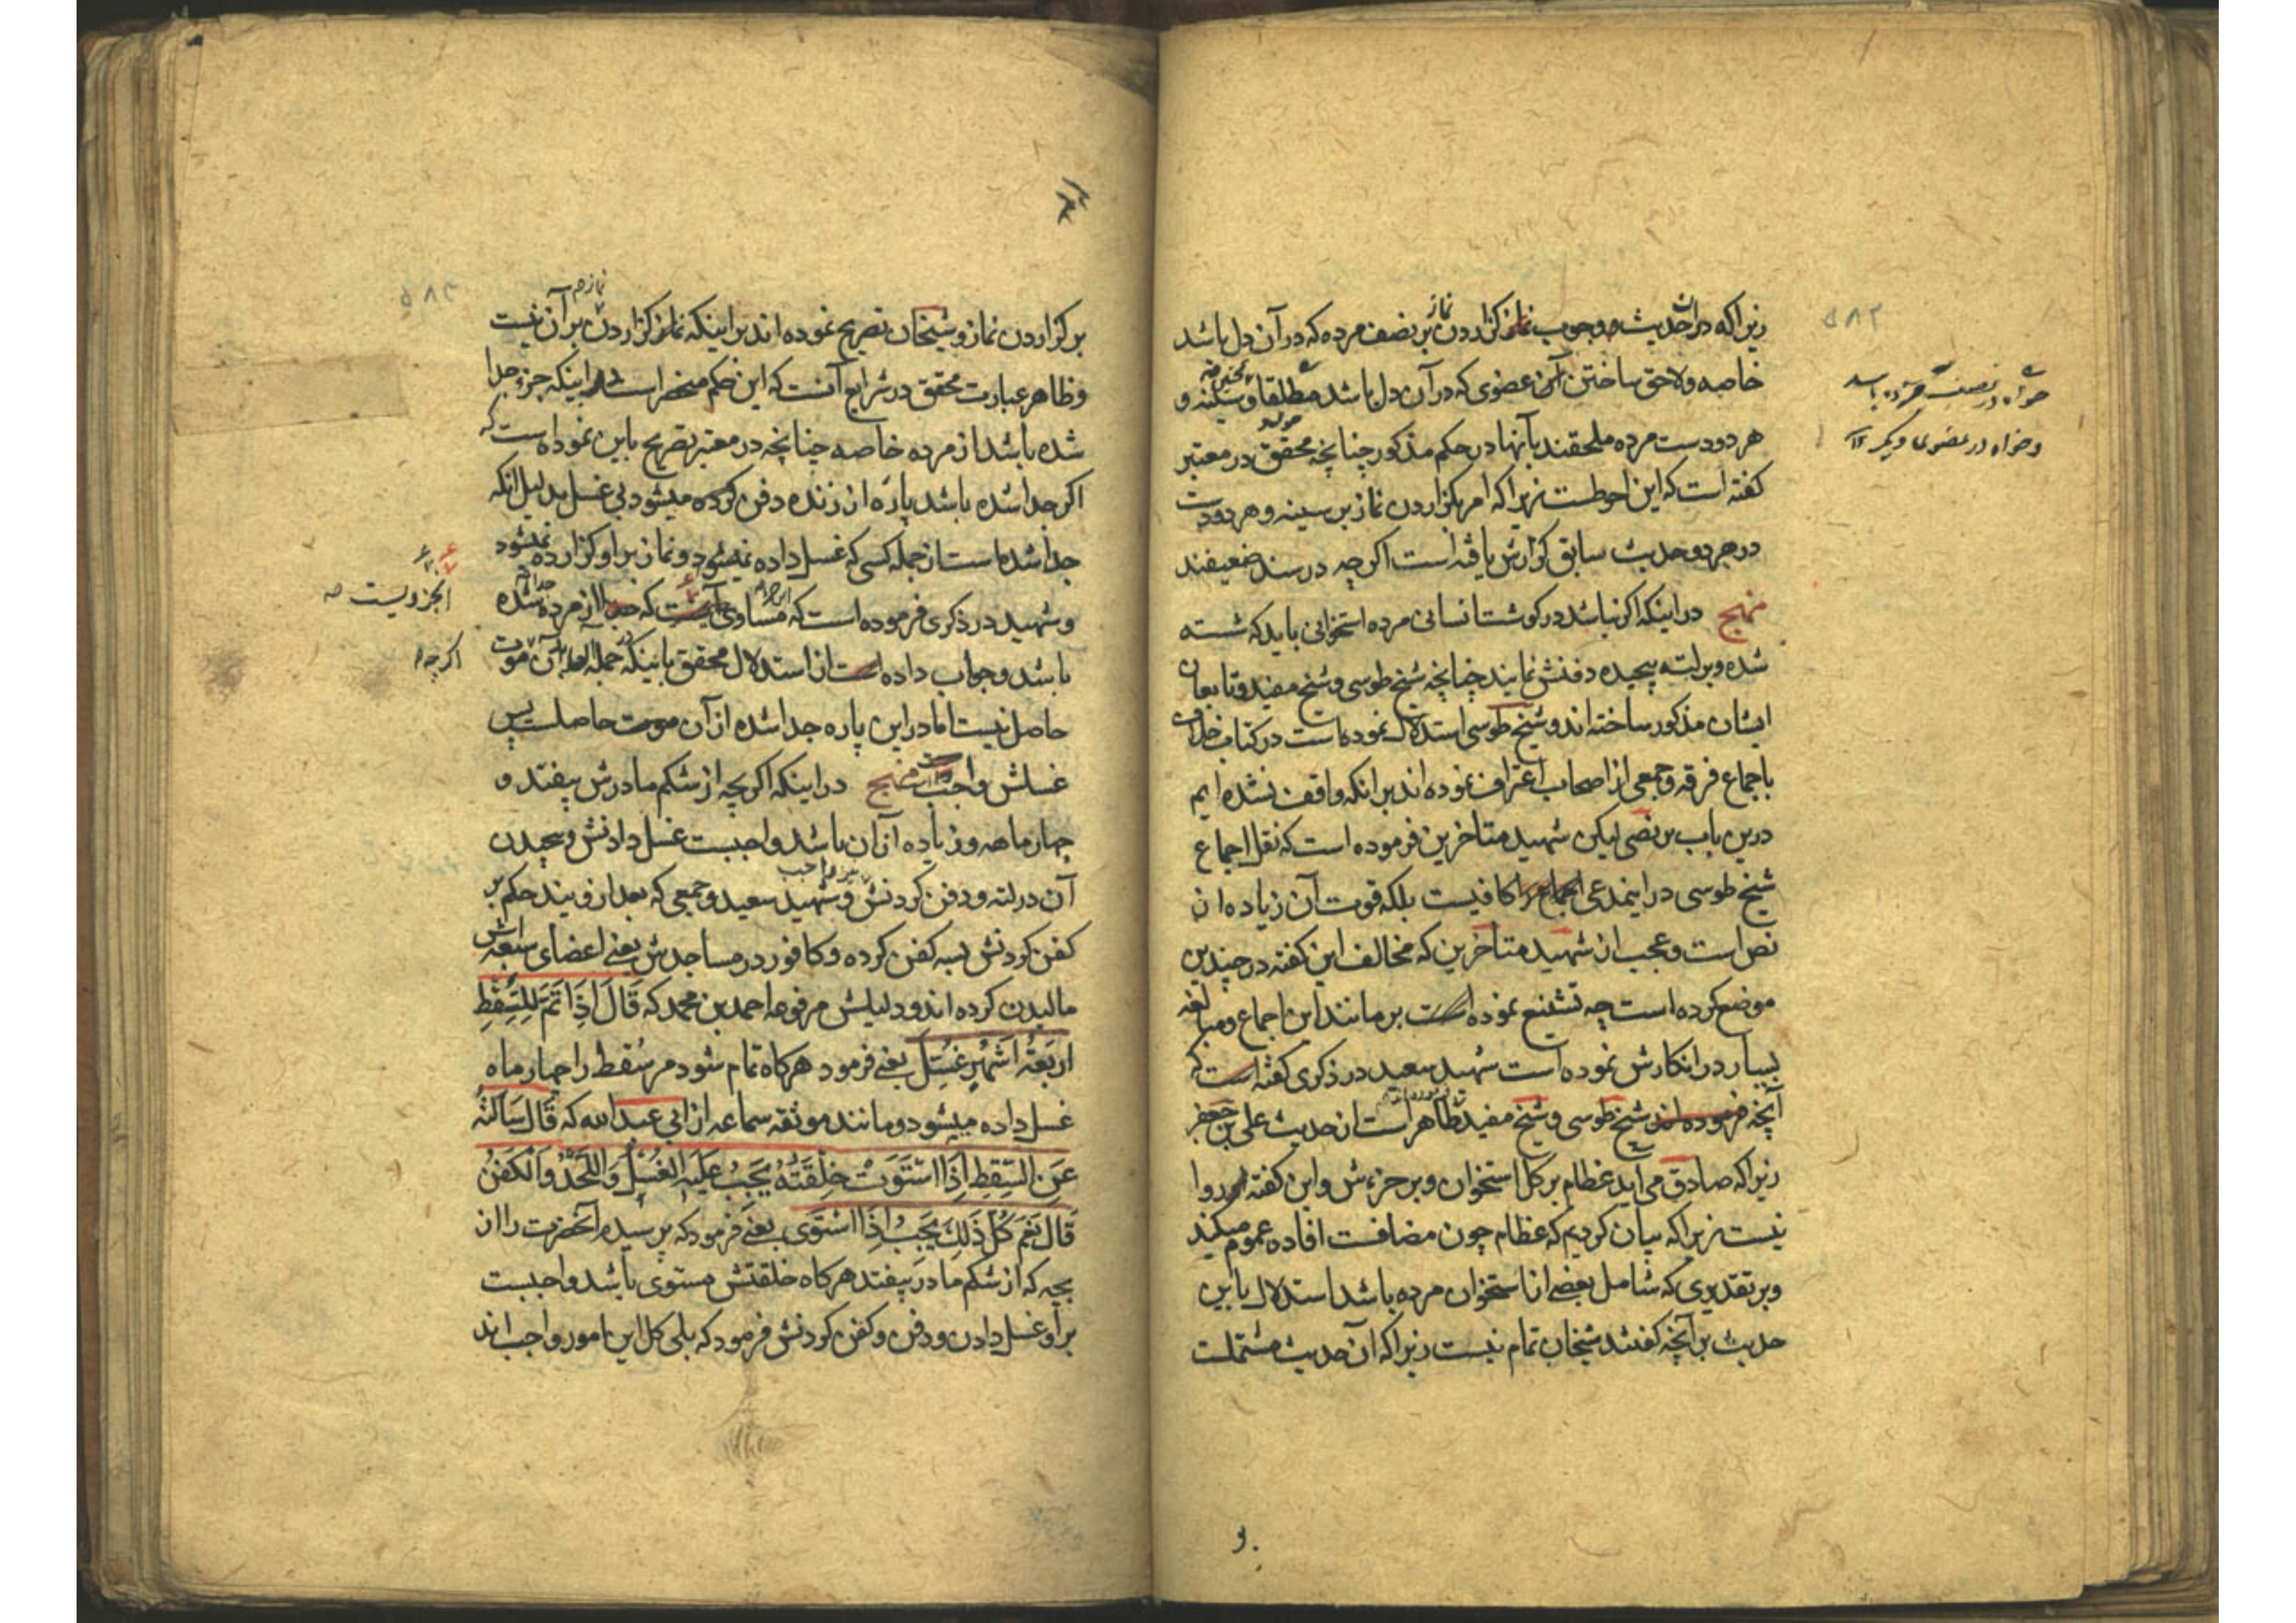 زیراکه در آن حدیث وجوب نماز گزاردن بر نصف مرده که در آن دل باشد
خاصه ولاحق ساختن آن عضوی که در آن دل باشد مطلقا وسینه و
هر دو دست مرده ملحقند بآنها در حکم مذکور چنانچه محقق در معتبر
کفته است که این احوطست زیراکه امر بکزاردن نماز بر سینه و هر دو دست
در هر دو حدیث سابق کزارش یافته است اکرچه در سند ضعیفند
منهج در اینکه اکر نباشد در کوشت انسانی مرده استخوانی باید که شسته
شده و بر لته پیچیده دفنش نمایند چنانچه شیخ طوسی و شیخ مفید و تابعان
ایشان مذکور ساخته اند و شیخ طوسی استدلال نموده است در کتاب خلاف
باجماع فرقه و جمعی از اصحاب اعتراف نموده اند بر انکه واقف نشده ایم
درین باب بر نصی لیکن شهید متاخرین فرموده است که نقل اجماع
شیخ طوسی در اینمدعی کافیست بلکه قوت آن زیاده از
نص است و عجب از شهید متاخرین که مخالف این کفته در چندین
موضع کرده است چه تشنیع نموده است بر مانند این اجماع و مبالغه
بسیار در انکارش نموده است شهید سعید در ذکری کفته است که
آنچه فرموده اند شیخ طوسی و شیخ مفید ظاهر است از حدیث علی بن جعفر
زیراکه صادق می آید عظام بر کل استخوان و بر جزءش و این کفته او روا
نیست زیراکه بیان کردیم که عظام چون مضافست افاده عموم میکند
و بر تقدیری که شامل بعضی از استخوان مرده باشد استدلال باین
حدیث بر آنچه کفتند شیخان تمام نیست زیراکه آن حدیث مشتملست
خواه در نصف مرده باشد
وخواه در عضو تنها دیکر
بر کزاردن نماز و شیخان تصریح نموده اند بر اینکه نماز کزاردن بر آن نیست
وظاهر عبارت محقق در شرایع آنست که این حکم منحصر است در اینکه جزء جدا
شده باشد از مرده خاصه چنانچه در معتبر تصریح باین نموده است که
اکر جدا شده باشد پاره از زنده دفن کرده میشود بی غسل بدلیل انکه
جدا شده است از جمله کسی که غسل داده نمیشود و نماز بر او کزارده نمیشود
وشهید در ذکری فرموده است که مساوی که از مرده جدا شده
باشد و جواب داده است از استدلال محقق باینکه در جمله آن موت
حاصل نیست اما در این پاره جدا شده از آن موت حاصلست پس
غسلش واجبست منهج در اینکه اکر بچه از شکم مادرش بیفتد و
چهار ماهه و زیاده از ان باشد واجبست غسل دادنش و پیچیدن
آن در لته و دفن کردنش و شهید سعید و جمعی که بعد از ویند حکم بر
کفن کردنش بسه کفن کرده و کافور در مساجدش یعنی اعضای سبعه اش
مالیدن کرده اند و دلیلش مرفوعه احمد بن محمد که قَالَ اِذَا تَمَّ لِلسِّقْطِ
اَرْبَعَةُ اَشْهُرٍ غُسِّلَ یعنی فرمود هرکاه تمام شود مر سقط را چهار ماه
غسل داده میشود و مانند موثقه سماعه از ابی عبد الله که قَالَ سَاَلْتُهُ
عَنِ السِّقْطِ اِذَا اسْتَوَتْ خِلْقَتُهُ یَجِبُ عَلَیْهِ الْغُسْلُ وَاللَّحْدُ وَالْکَفَنُ
قَالَ نَعَمْ کُلُّ ذَلِکَ یَجِبُ اِذَا اسْتَوَی یعنی فرمود که پرسیدم آنحضرت را از
بچه که از شکم مادر بیفتد هرکاه خلقتش مستوی باشد واجبست
بر او غسل دادن و دفن و کفن کردنش فرمود که بلی کل این امور واجب اند
اکرچه